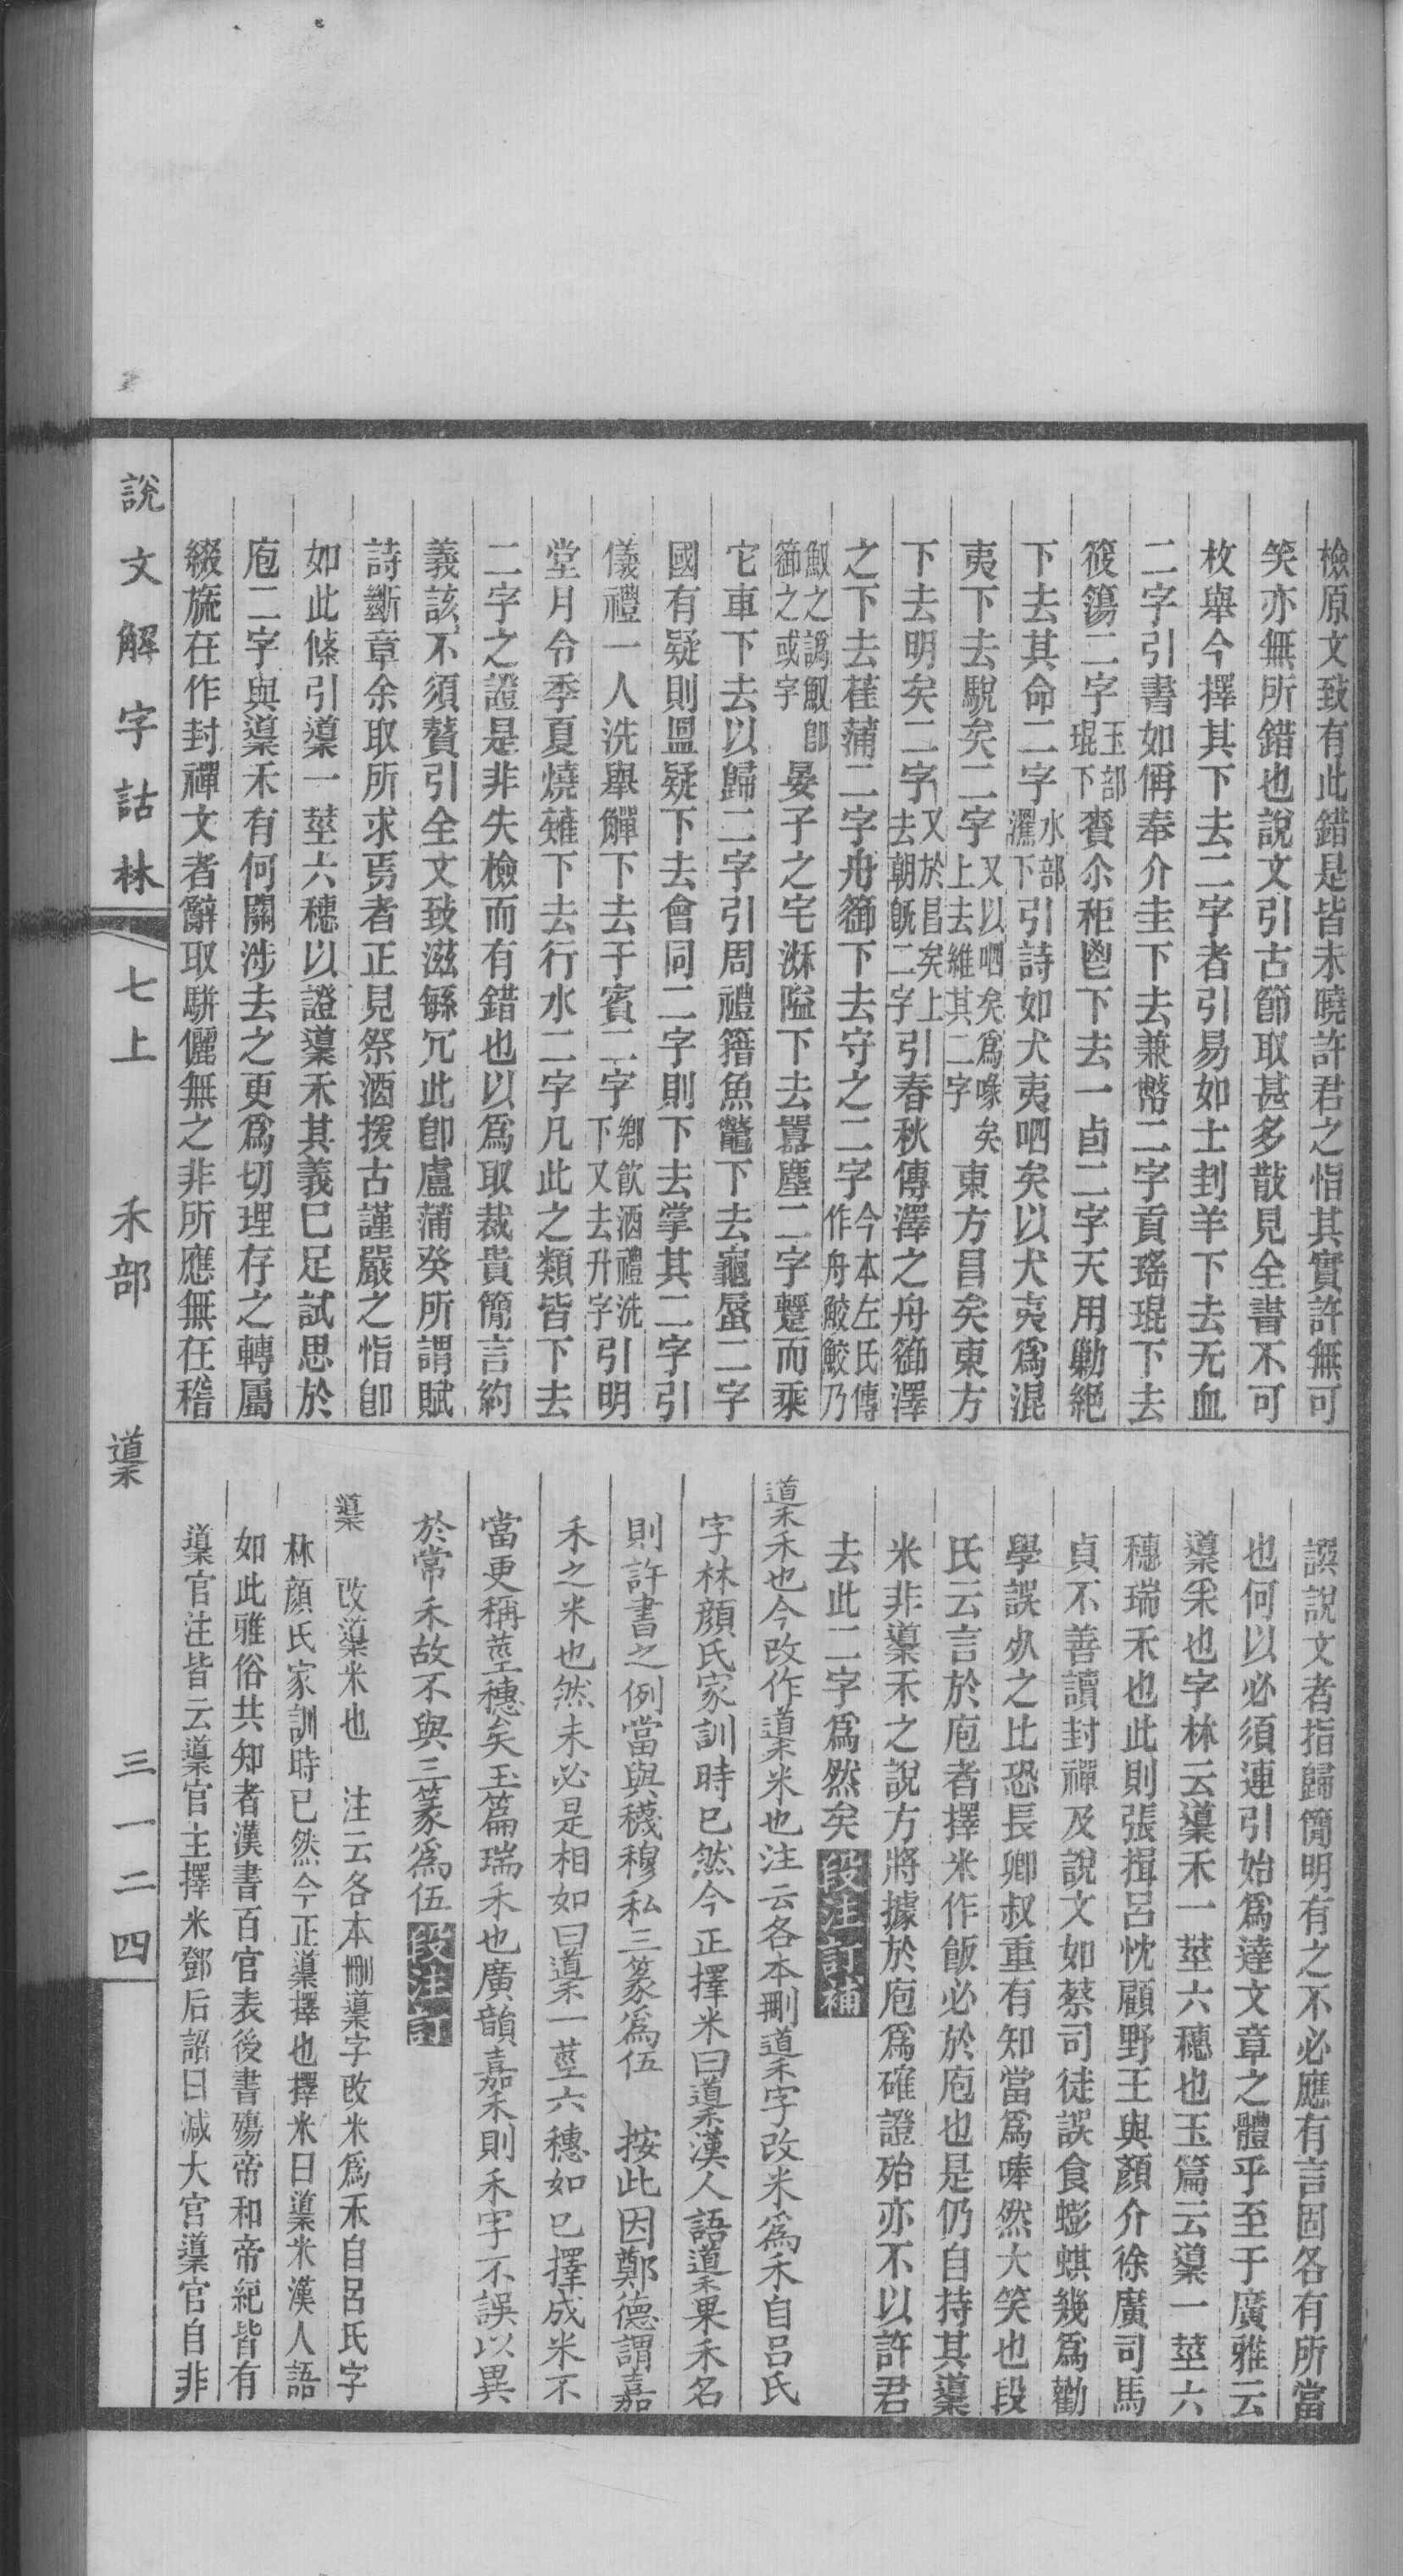 檢原文致有此錯是皆未曉許君之恉其實許無可
笑亦無所錯也說文引古節取甚多散見全書不可
枚舉今擇其下去二字者引易如士刲羊下去无血
二字引書如偁奉介圭下去兼幣二字貢瑤琨下去
筱簜二字玉部琨下賚尒秬鬯下去一卣二字天用勦絕
下去其命二字水部灑下引詩如犬夷呬矣以犬夷爲混
夷下去駾矣二字又以呬矣爲喙矣上去維其二字東方昌矣東方
下去明矣二字又於昌矣上去朝旣二字引春秋傳澤之舟篽澤
之下去萑蒲二字舟篽下去守之二字今本左氏傳作舟鮫鮫乃
䱷之譌䱷卽篽之或字晏子之宅湫隘下去囂塵二字䠠而乘
它車下去以歸二字引周禮籍魚鼈下去龜蜃二字
國有疑則盟疑下去會同二字則下去掌其二字引
儀禮一人洗舉觶下去于賓二字鄉飲酒禮洗下又去升字引明
堂月令季夏燒薙下去行水二字凡此之類皆下去
二字之證是非失檢而有錯也以爲取裁貴簡言約
義該不須贅引全文致滋緐冗此卽盧蒲癸所謂賦
詩斷章余取所求焉者正見祭酒援古謹嚴之恉卽
如此條引䆃一莖六穗以證䆃禾其義巳足試思於
庖二字與䆃禾有何關涉去之更爲切理存之轉屬
綴旒在作封禪文者辭取騈儷無之非所應無在稽
誤說文者指歸簡明有之不必應有言固各有所當
也何以必須連引始爲達文章之體乎至于廣雅云
䆃釆也字林云䆃禾一莖六穗也玉篇云䆃一莖六
穗瑞禾也此則張揖呂忱顧野王與顏介徐廣司馬
貞不善讀封禪及說文如蔡司徒誤食蟛蜞幾爲勸
學誤𣦸之比恐長卿叔重有知當爲唪然大笑也段
氏云言於庖者擇米作飯必於庖也是仍自持其䆃
米非䆃禾之說方將據於庖爲確證殆亦不以許君
去此二字爲然矣段注訂補
䆃禾也今改作䆃米也注云各本刪䆃字改米爲禾自呂氏
字林顏氏家訓時已然今正擇米曰䆃漢人語䆃果禾名
則許書之例當與穖穆私三篆爲伍 按此因鄭德謂嘉
禾之米也然未必是相如曰䆃一莖六穗如已擇成米不
當更稱莖穗矣玉篇瑞禾也廣韻嘉禾則禾字不誤以異
於常禾故不與三篆爲伍段注訂
䆃 改䆃米也 注云各本刪䆃字改米爲禾自呂氏字
林顏氏家訓時已然今正䆃擇也擇米曰䆃米漢人語
如此雅俗共知者漢書百官表後書殤帝和帝紀皆有
䆃官注皆云䆃官主擇米鄧后詔曰減大官䆃官自非
說文解字詁林 七上 禾部 䆃 三一二四